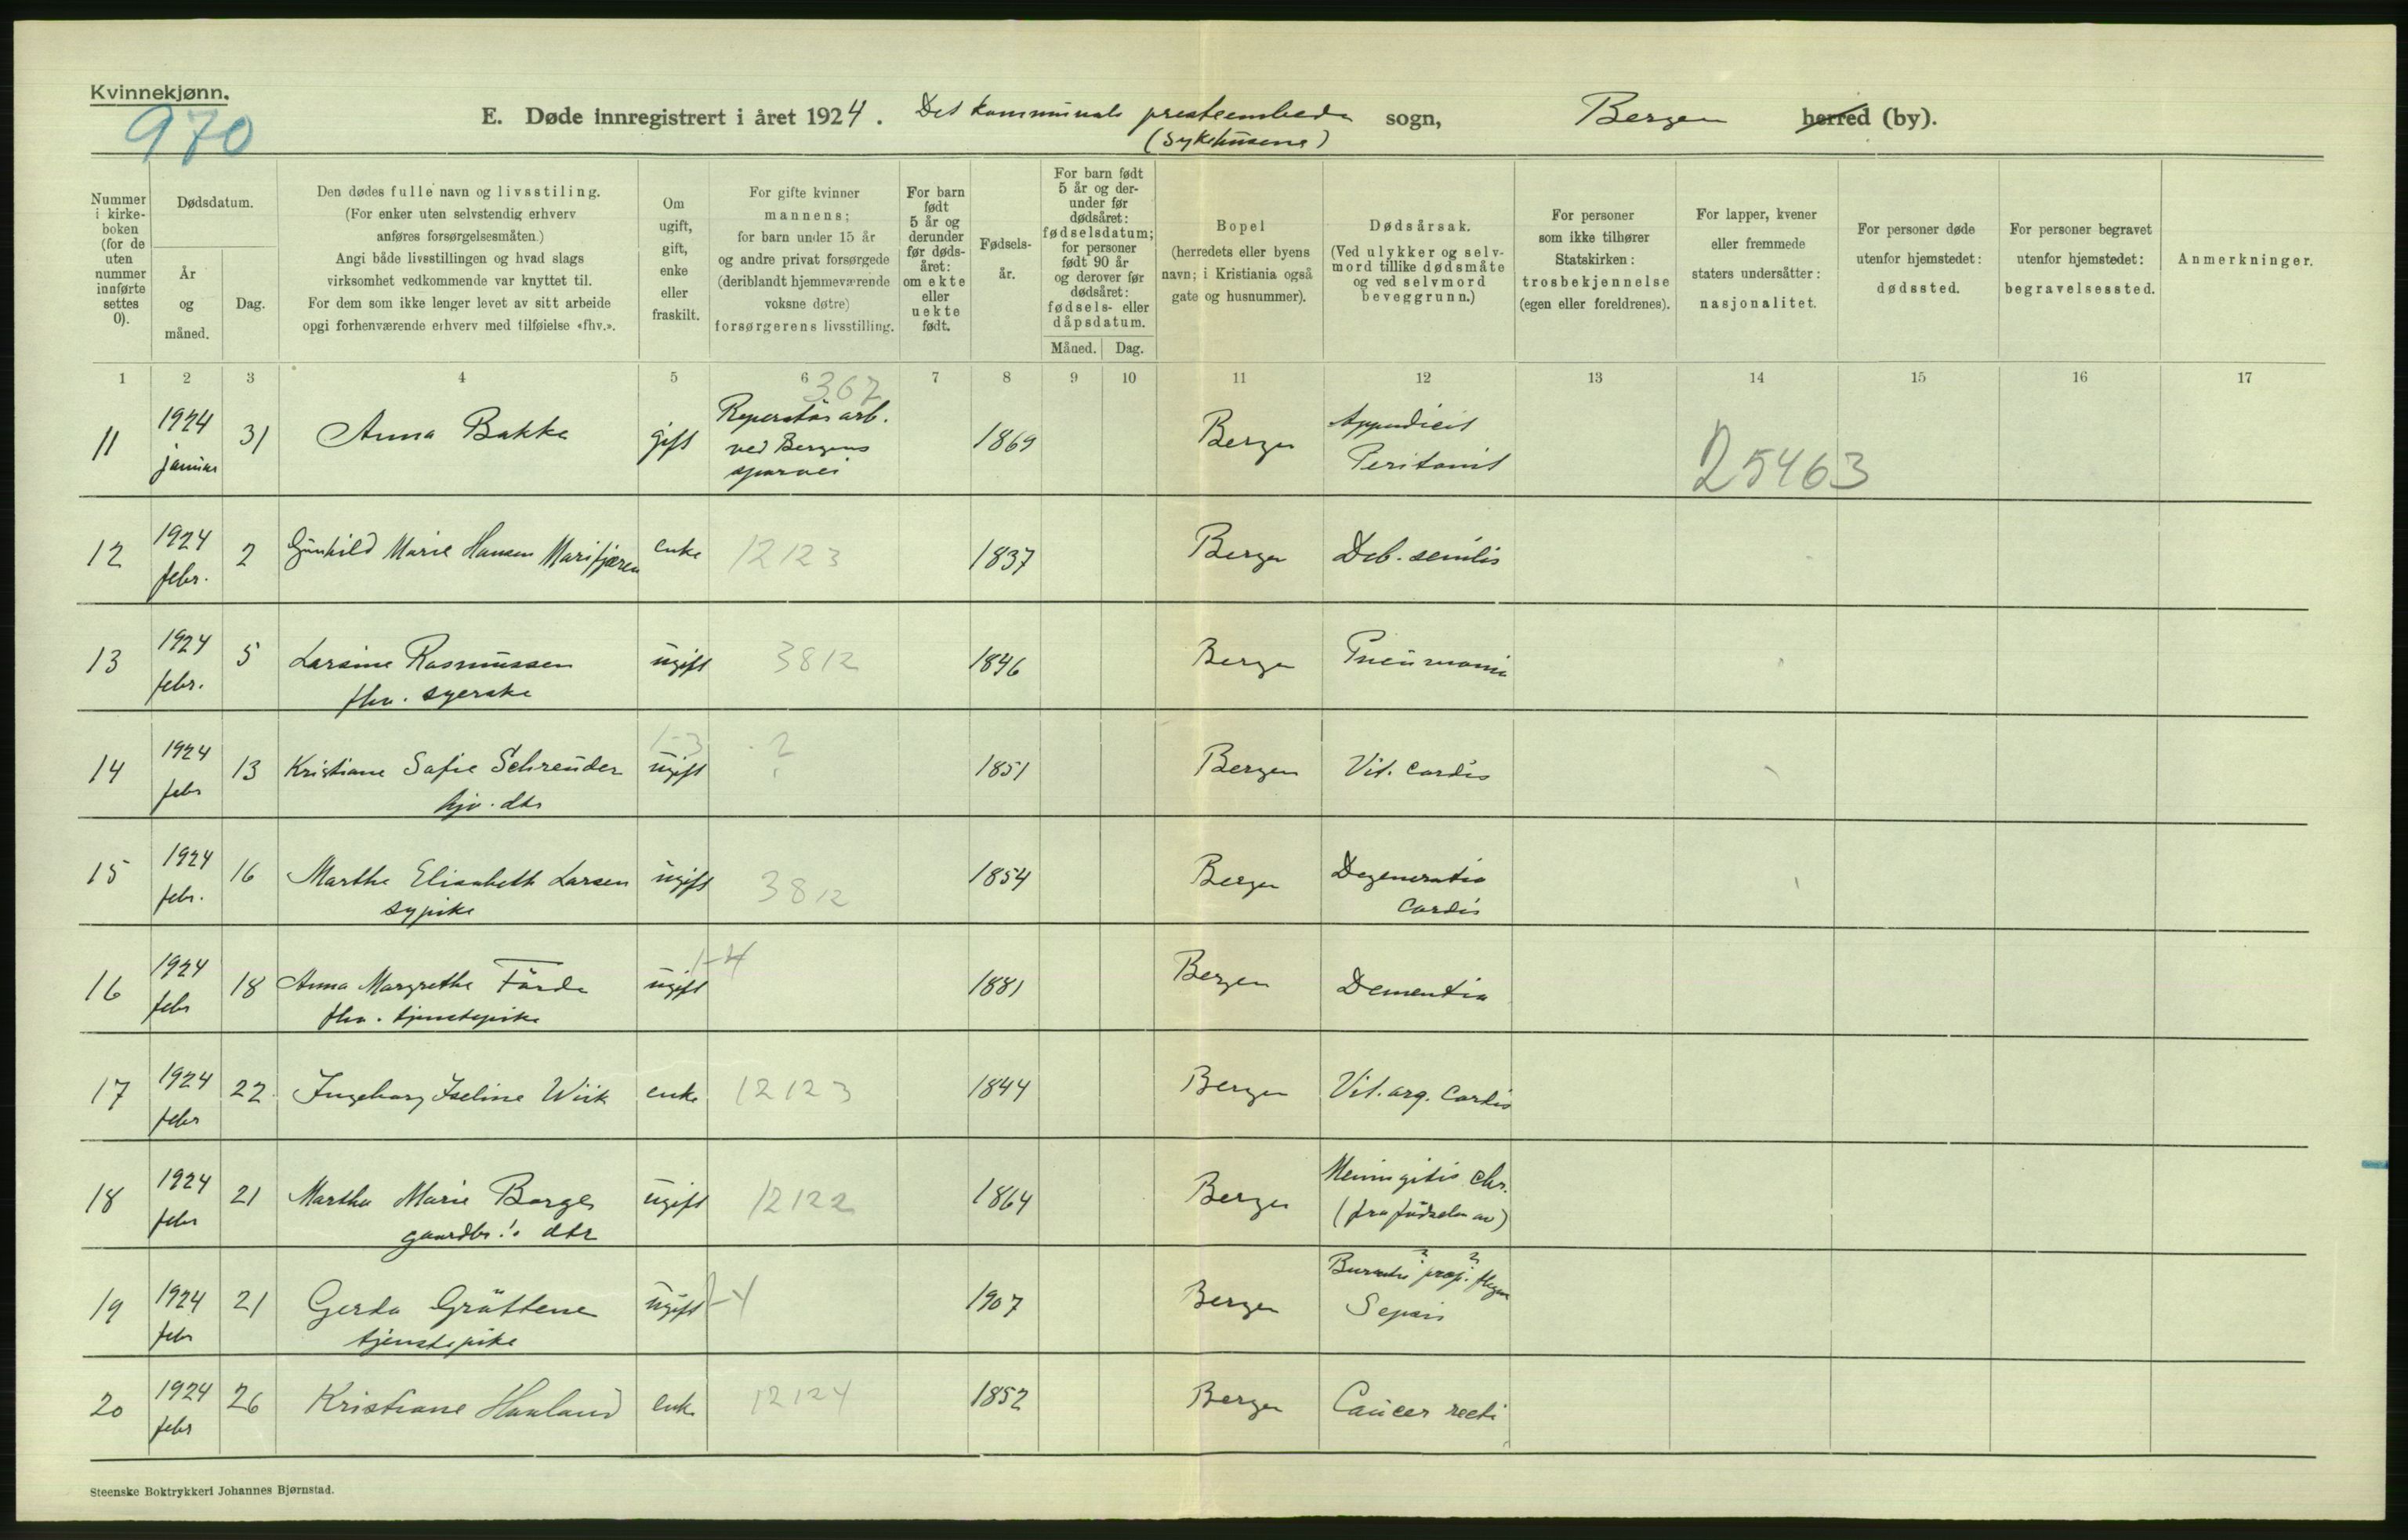 Kvinnekjønn.
970
E. Døde innregistrert i året 1924. Det kommunale presteembede sogn, Bergen herred (by).
(Sykehusene)
Nummer i kirkeboken (for de uten nummer innførte settes 0).
Dødsdatum.
År og måned.
Dag.
Den dødes fulle navn og livsstiling.
(For enker uten selvstendig erhverv
anføres forsørgelsesmåten.)
Angi både livsstillingen og hvad slags
virksomhet vedkommende var knyttet til.
For dem som ikke lenger levet av sitt arbeide
opgi forhenværende erhverv med tilføielse «fhv.».
Om
ugift,
gift,
enke
eller
fraskilt.
For gifte kvinner
mannens;
for barn under 15 år
og andre privat forsørgede
(deriblandt hjemmeværende
voksne døtre)
forsørgerens livsstilling.
For barn
født
5 år og
derunder
før døds-
året:
om ekte
eller
uekte
født.
Fødsels-
år.
For barn født
5 år og der-
under før
dødsåret:
fødselsdatum;
for personer
født 90 år
og derover før
dødsåret:
fødsels- eller
dåpsdatum.
Måned. Dag.
Bopel
(herredets eller byens
navn; i Kristiania også
gate og husnummer).
Dødsårsak.
(Ved ulykker og selv-
mord tillike dødsmåte
og ved selvmord
beveggrunn.)
For personer
som ikke tilhører
Statskirken:
trosbekjennelse
(egen eller foreldrenes).
For lapper, kvener
eller fremmede
staters undersåtter:
nasjonalitet.
For personer døde
utenfor hjemstedet:
dødssted.
For personer begravet
utenfor hjemstedet:
begravelsessted.
Anmerkninger.
1 2 3 4 5 6 7 8 9 10 11 12 13 14 15 16 17
367
11 1924 januar 31 Anna Bakke gift Reperatør arb. ved Bergens sporvei 1869 Bergen Appendicit Peritonit
25463
12 1924 febr. 2 Gunhild Marie Hansen Marifjæren enke 12123 1837 Bergen Deb. senilis
13 1924 febr. 5 Larsine Rasmussen ugift 3812 1846 Bergen Pneumonia
fhv. syerske
1-3 ?
14 1924 febr 13 Kristiane Sofie Schreuder ugift 1851 Bergen Vit. cordis
hjv. dtr
15 1924 febr. 16 Marthe Elisabeth Larsen ugift 3812 1854 Bergen Degeneratio Cordis
sypike
1-4
16 1924 febr 18 Anna Margrethe Førde ugift 1881 Bergen Dementia
fhv. tjenestepike
17 1924 febr 22 Ingeborg Iseline Wiik enke 12123 1844 Bergen Vit. org. Cordis
18 1924 febr 21 Martha Marie Borge ugift 12122 1864 Bergen Meningitis chr. (fra fødselen av)
gaardbr.'s dtr
19 1924 febr 21 Gerda Grøttene ugift 1-4 1907 Bergen Sepsis
tjenestepike
20 1924 febr 26 Kristiane Haaland enke 12124 1852 Bergen Cancer recti
Steenske Boktrykkeri Johannes Bjørnstad.